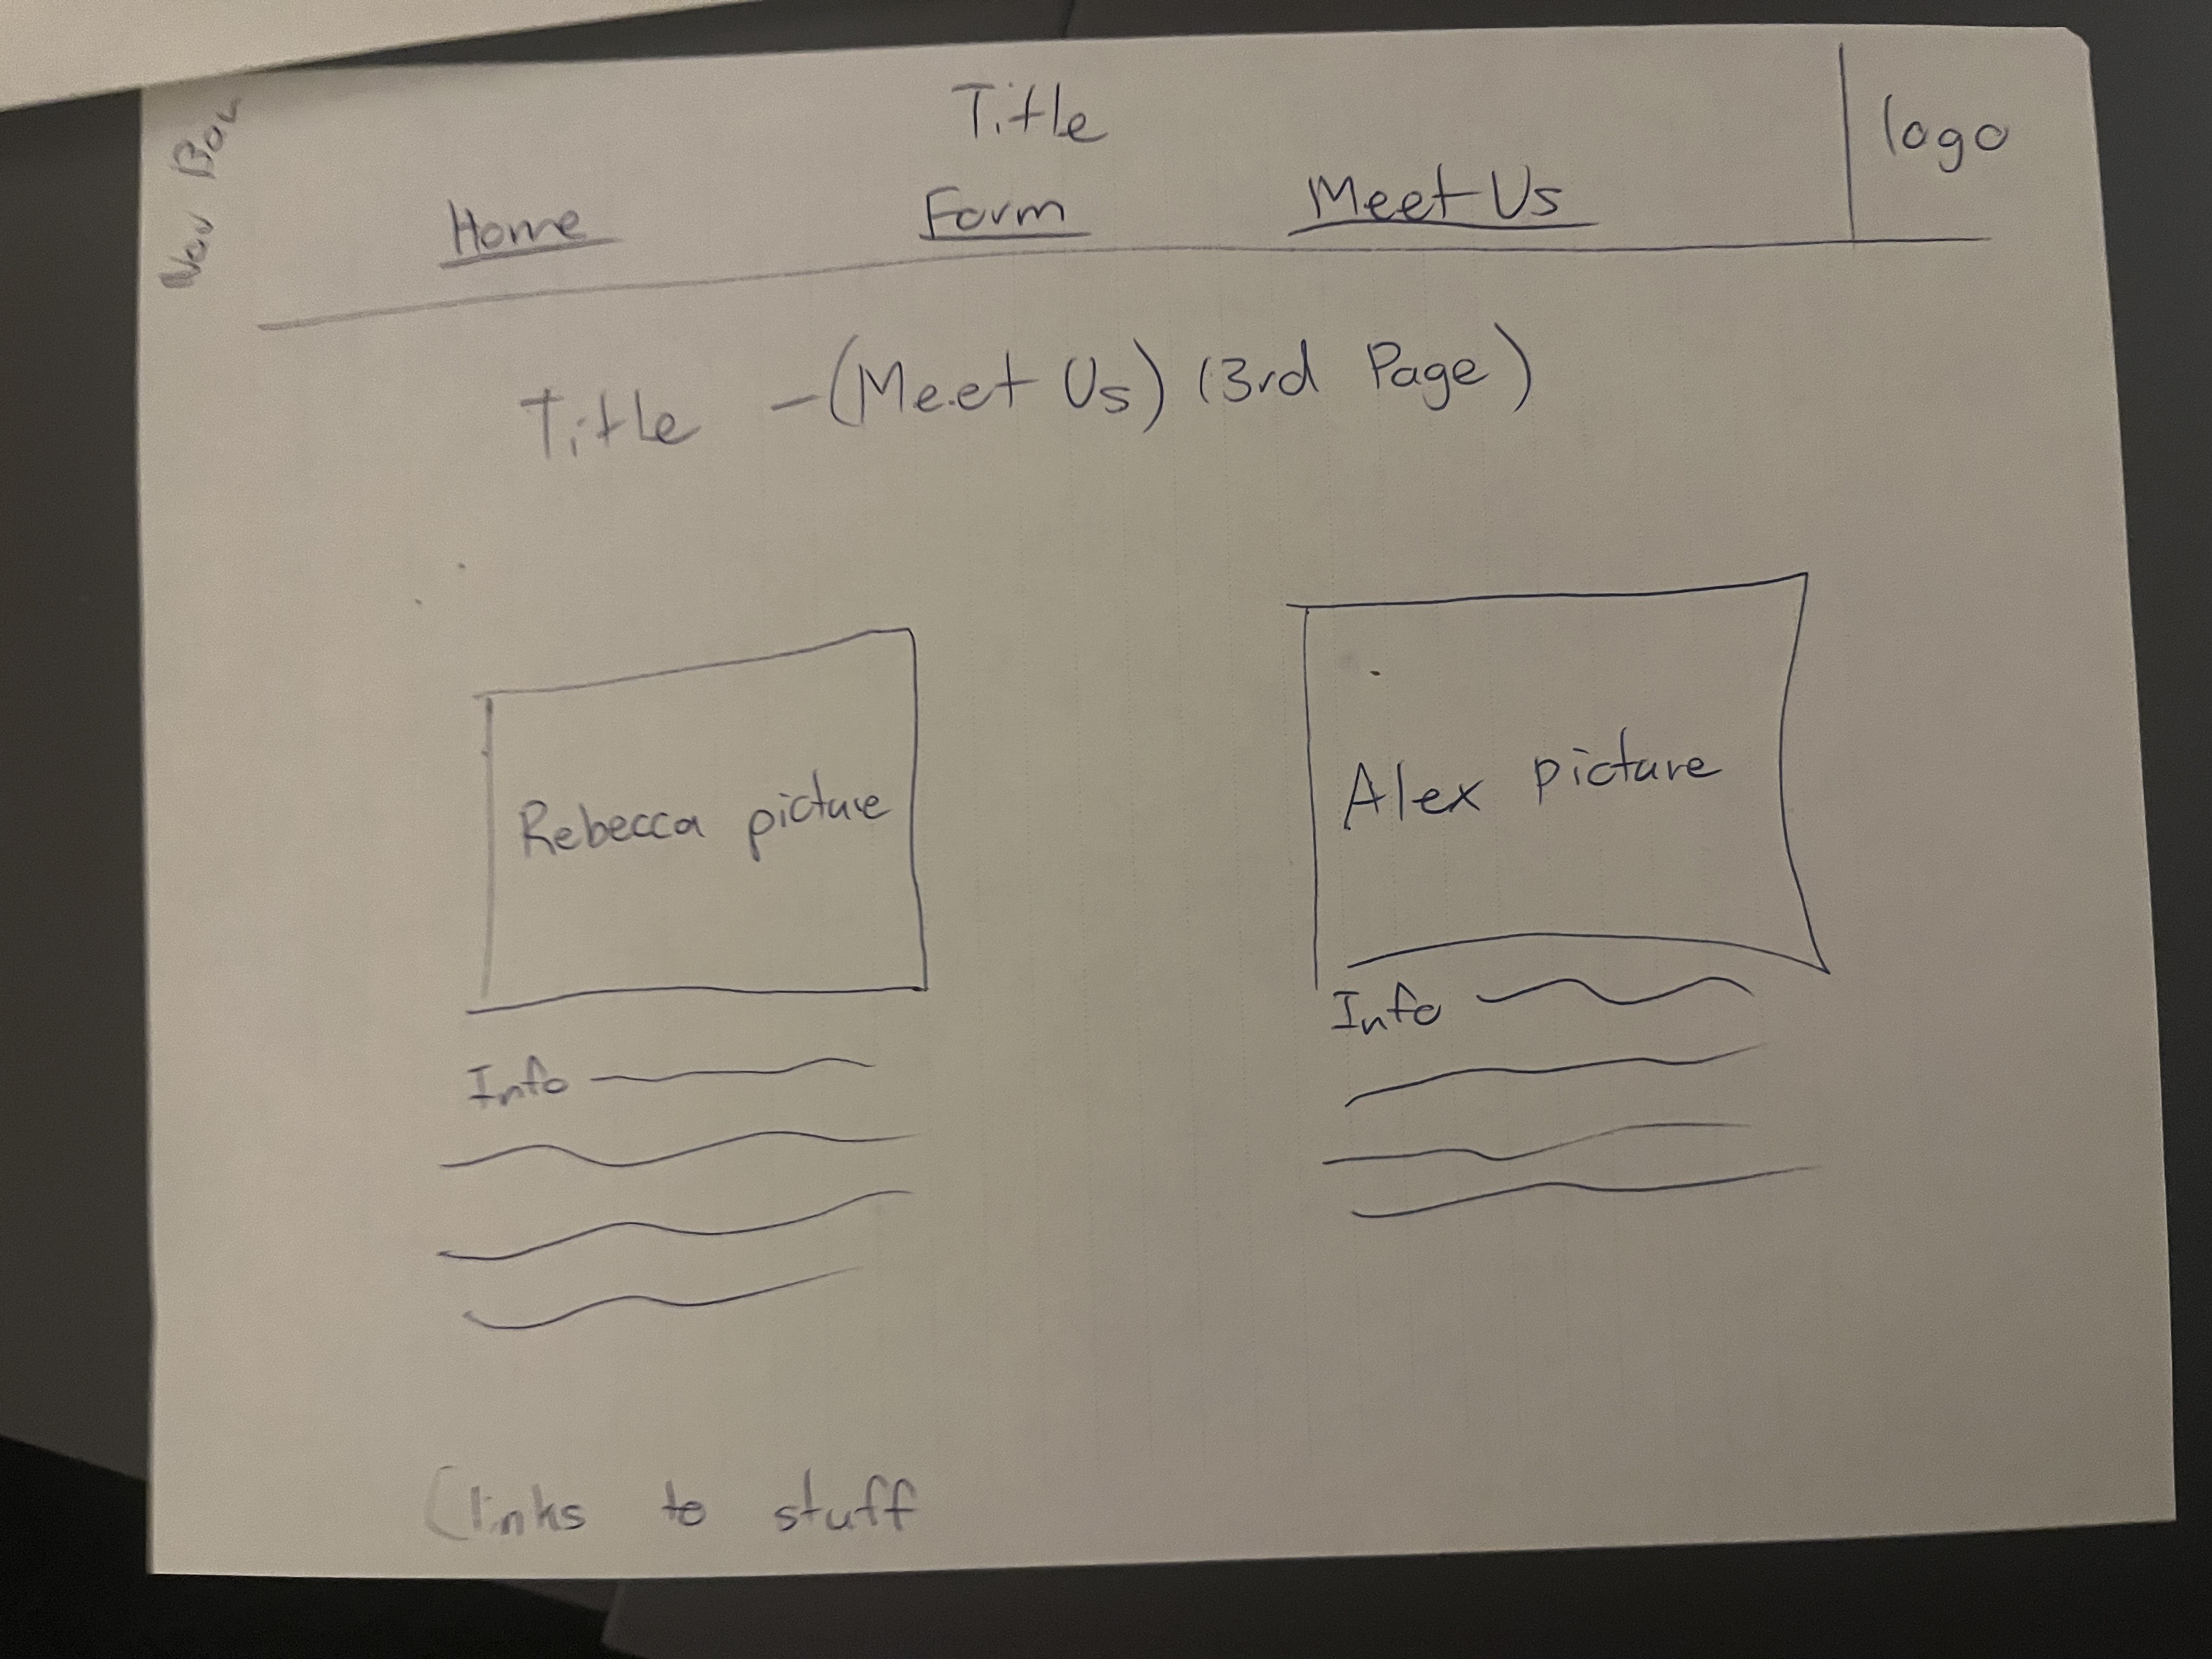 Title
logo
Nav Bar
Home Form Meet Us
Title - (Meet Us) (3rd Page)
Rebecca picture
Alex picture
Info
Info
(links to stuff